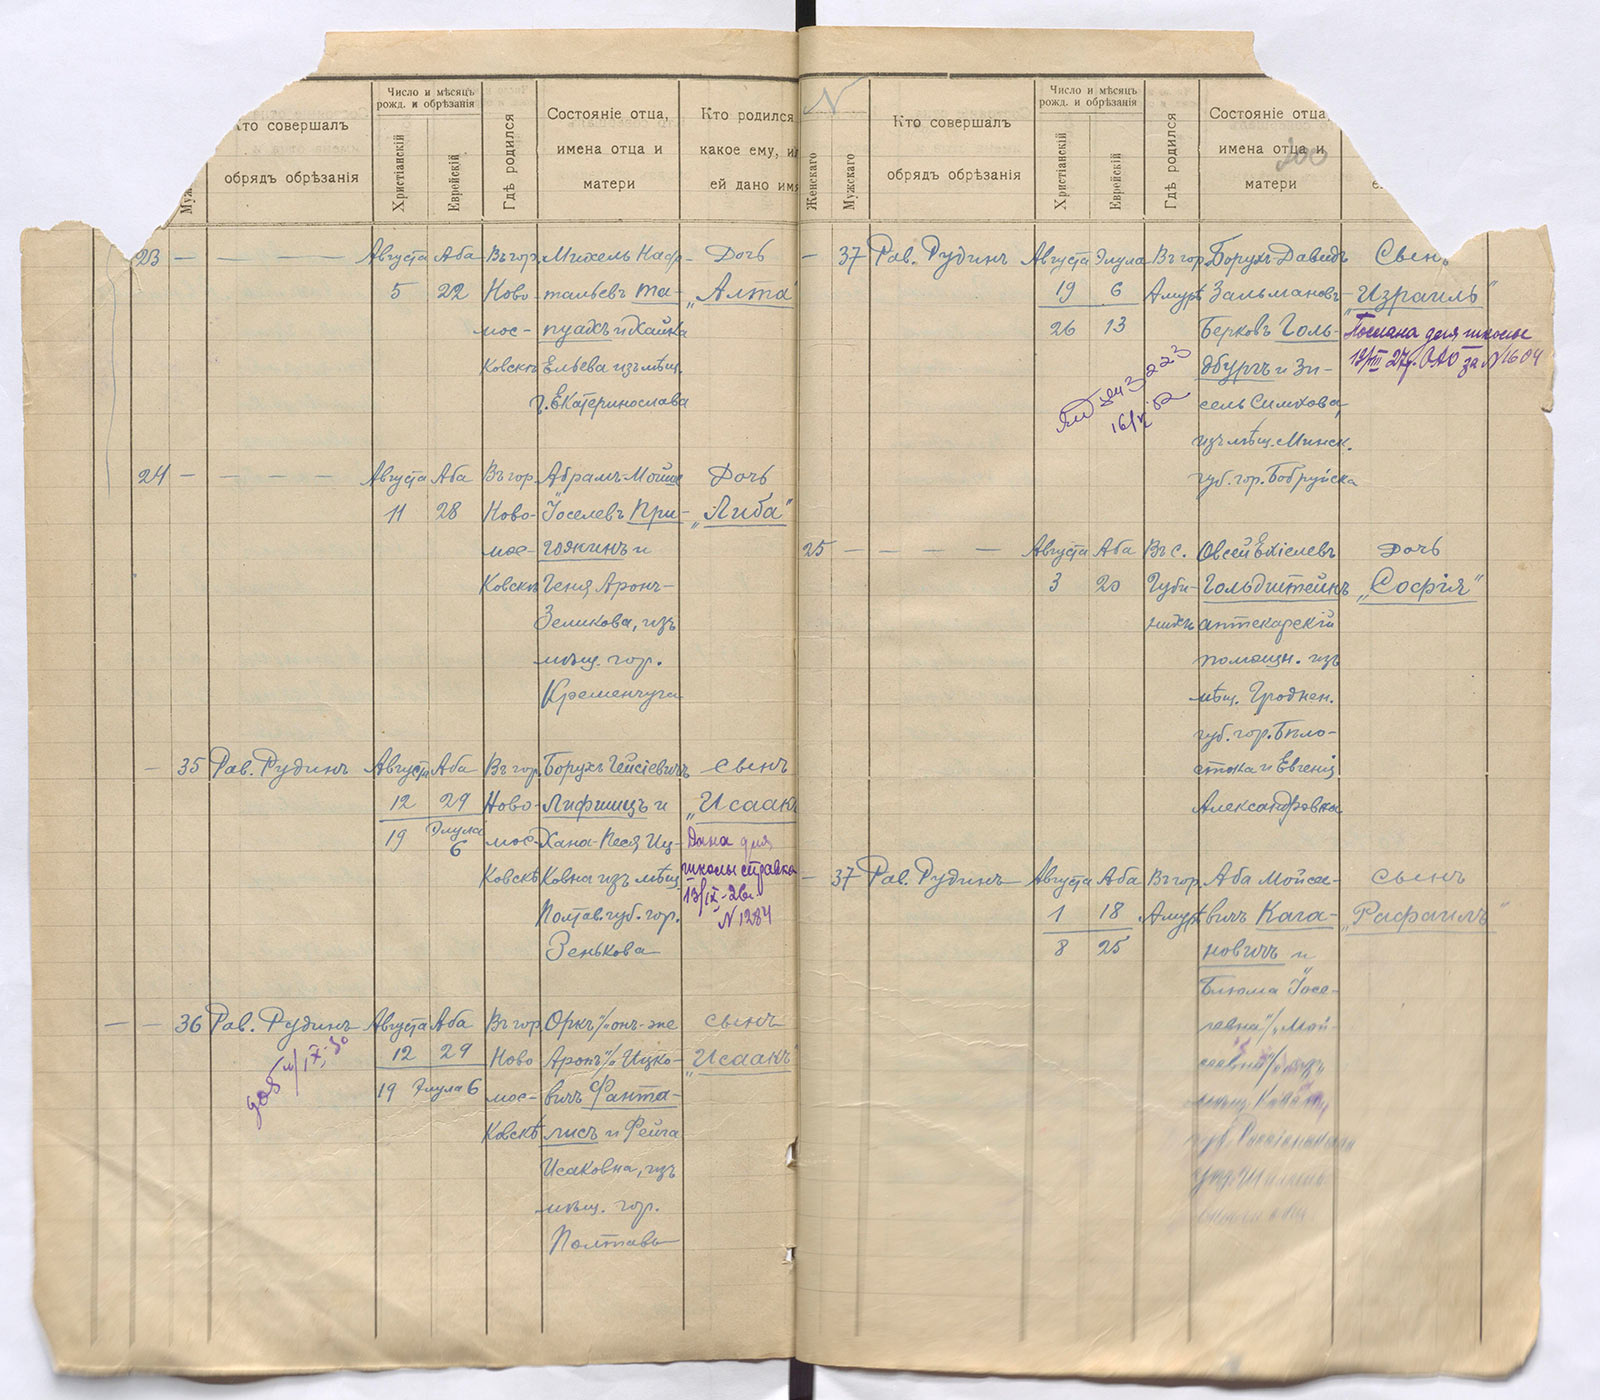 Число и мѣсяцъ
рожд. и обрѣзанія
Кто совершалъ
обрядъ обрѣзанія
Христіанскій
Еврейскій
Гдѣ родился
Состояніе отца,
имена отца и
матери
Кто родился
какое ему, и
ей дано имя
23 — — — — — Августа Аба Въ гор. Михель Наф- Дочь
5 22 Ново- тальевъ Та- „Алта"
мос- пуахъ и Хайка
ковскѣ Ельева изъ мѣщ.
г. Екатеринослава
24 — — — — — Августа Аба Въ гор. Абрамъ-Мойше Дочь
11 28 Ново- Іоселевъ При- „Либа"
мос- гожинъ и
ковскѣ Геня Аронъ-
Зеликова, изъ
мѣщ. гор.
Кременчуга
— 35 Рав. Рудинъ Августа Аба Въ гор. Борухъ Гейсіевичъ сынъ
12 29 Ново- Лифшицъ и „Исаакъ
19 Элула 6 мос- Хана-Песя Иц- Дана для
ковскѣ ковна изъ мѣщ. школы справка
Полтав. губ. гор. 13/IX-26г.
Зенькова N 1284
— — 36 Рав. Рудинъ Августа Аба Въ гор. Оркъ % онъ-же сынъ
12 29 Ново Аронъ % Ицко- „Исаакъ"
19 Элула 6 мос- вичъ Фанта-
ковскѣ лисъ и Фейга
Исаковна, изъ
мѣщ. гор.
Полтавы
N
Женскаго
Мужскаго
Кто совершалъ
обрядъ обрѣзанія
Число и мѣсяцъ
рожд. и обрѣзанія
Христіанскій
Еврейскій
Гдѣ родился
Состояніе отца
имена отца и
матери
200
— 37 Рав. Рудинъ Августа Элула Въ гор. Борухъ Давидъ Сынъ
19 6 Амурѣ Зальмановъ- „Израиль"
26 13 Берковъ Голь- Послана для школы
дбургъ и Зи- 13/VIII 27г. ОАО за N 1604
сель Симхова,
изъ мѣщ. Минск.
губ. гор. Бобруйска
16/V 52
25 — — — — Августа Аба Въ с. Овсей Ехіелевъ Дочь
3 20 Губи- Гольдштейнъ „Софія"
нихѣ аптекарскій
помощн. изъ
мѣщ. Гроднен.
губ. гор. Бѣло-
стока и Евгенія
Александровна
— 37 Рав. Рудинъ Августа Аба Въ гор. Аба Мойсе- сынъ
1 18 Амурѣ вичъ Кага- „Рафаилъ"
8 25 новичъ и
Блюма Іосе-
левна % Мой-
сеевна % изъ
мѣщ.
губ.